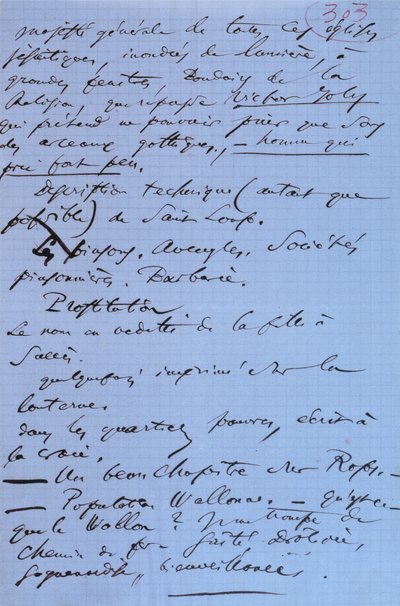 303
majesté générale de toutes ces églises
jésuitiques, inondées de lumière, à
grandes fenêtres, Boudoirs de la
Religion, que repousse Victor Joly
qui prétend ne pouvoir prier que sous
des arceaux gothiques, — homme qui
prie fort peu.
Description technique (autant que
possible) de Saint Loup.
Les pinsons. Aveugles. Sociétés
pinsonnières. Barbarie.
Prostitution
Le nom en vedette de la fille à
Succès.
quelquefois imprimé sur la
lanterne.
dans les quartiers pauvres, écrit à
la craie.
— Un beau chapitre sur Rops. —
— Population Wallonne. — Qu'est-ce
que le Wallon ? de
chemin de fer gaîté
goguenards, bienveillance.